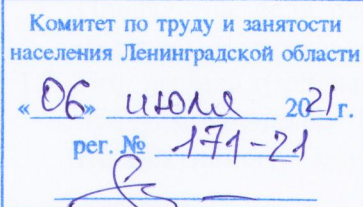 Комитет по труду и занятости
населения Ленинградской области
«06» июля 2021г.
рег. № 171-21